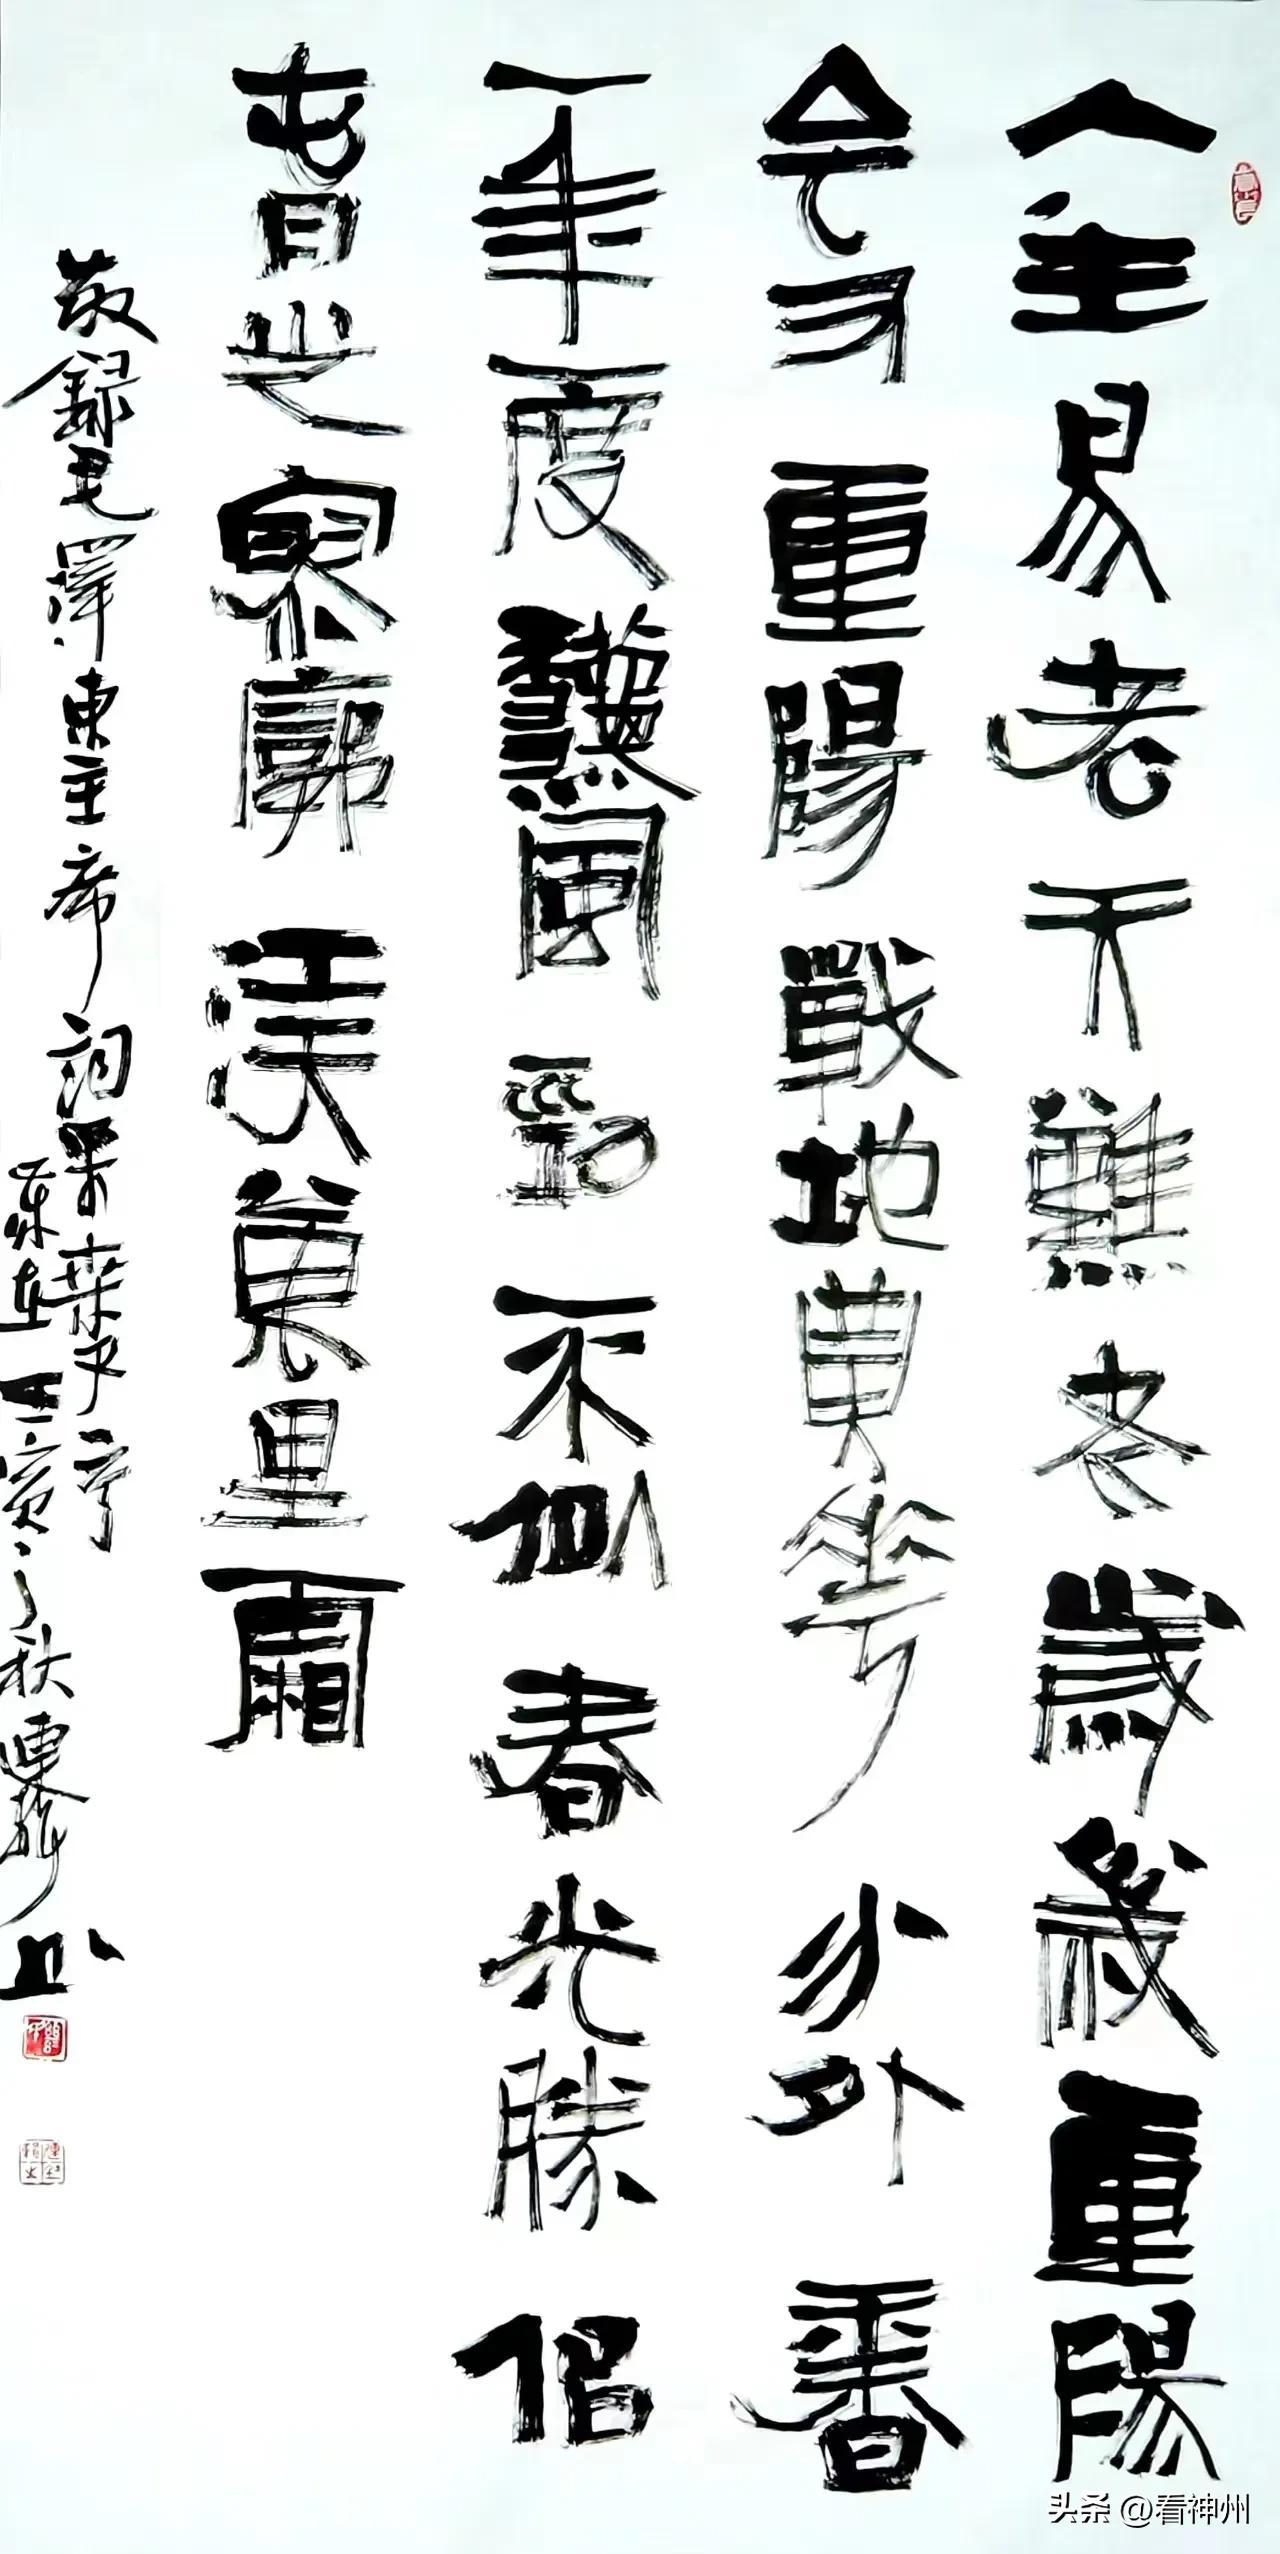 人生易老天難老歲歲重陽
今又重陽戰地黃華分外香
一年一度龝風勁不似春光勝佀
旾光寥廓江天萬里霜
敬録毛澤東主席詞采桑子
歲在壬寅之秋連書
头条 @看神州